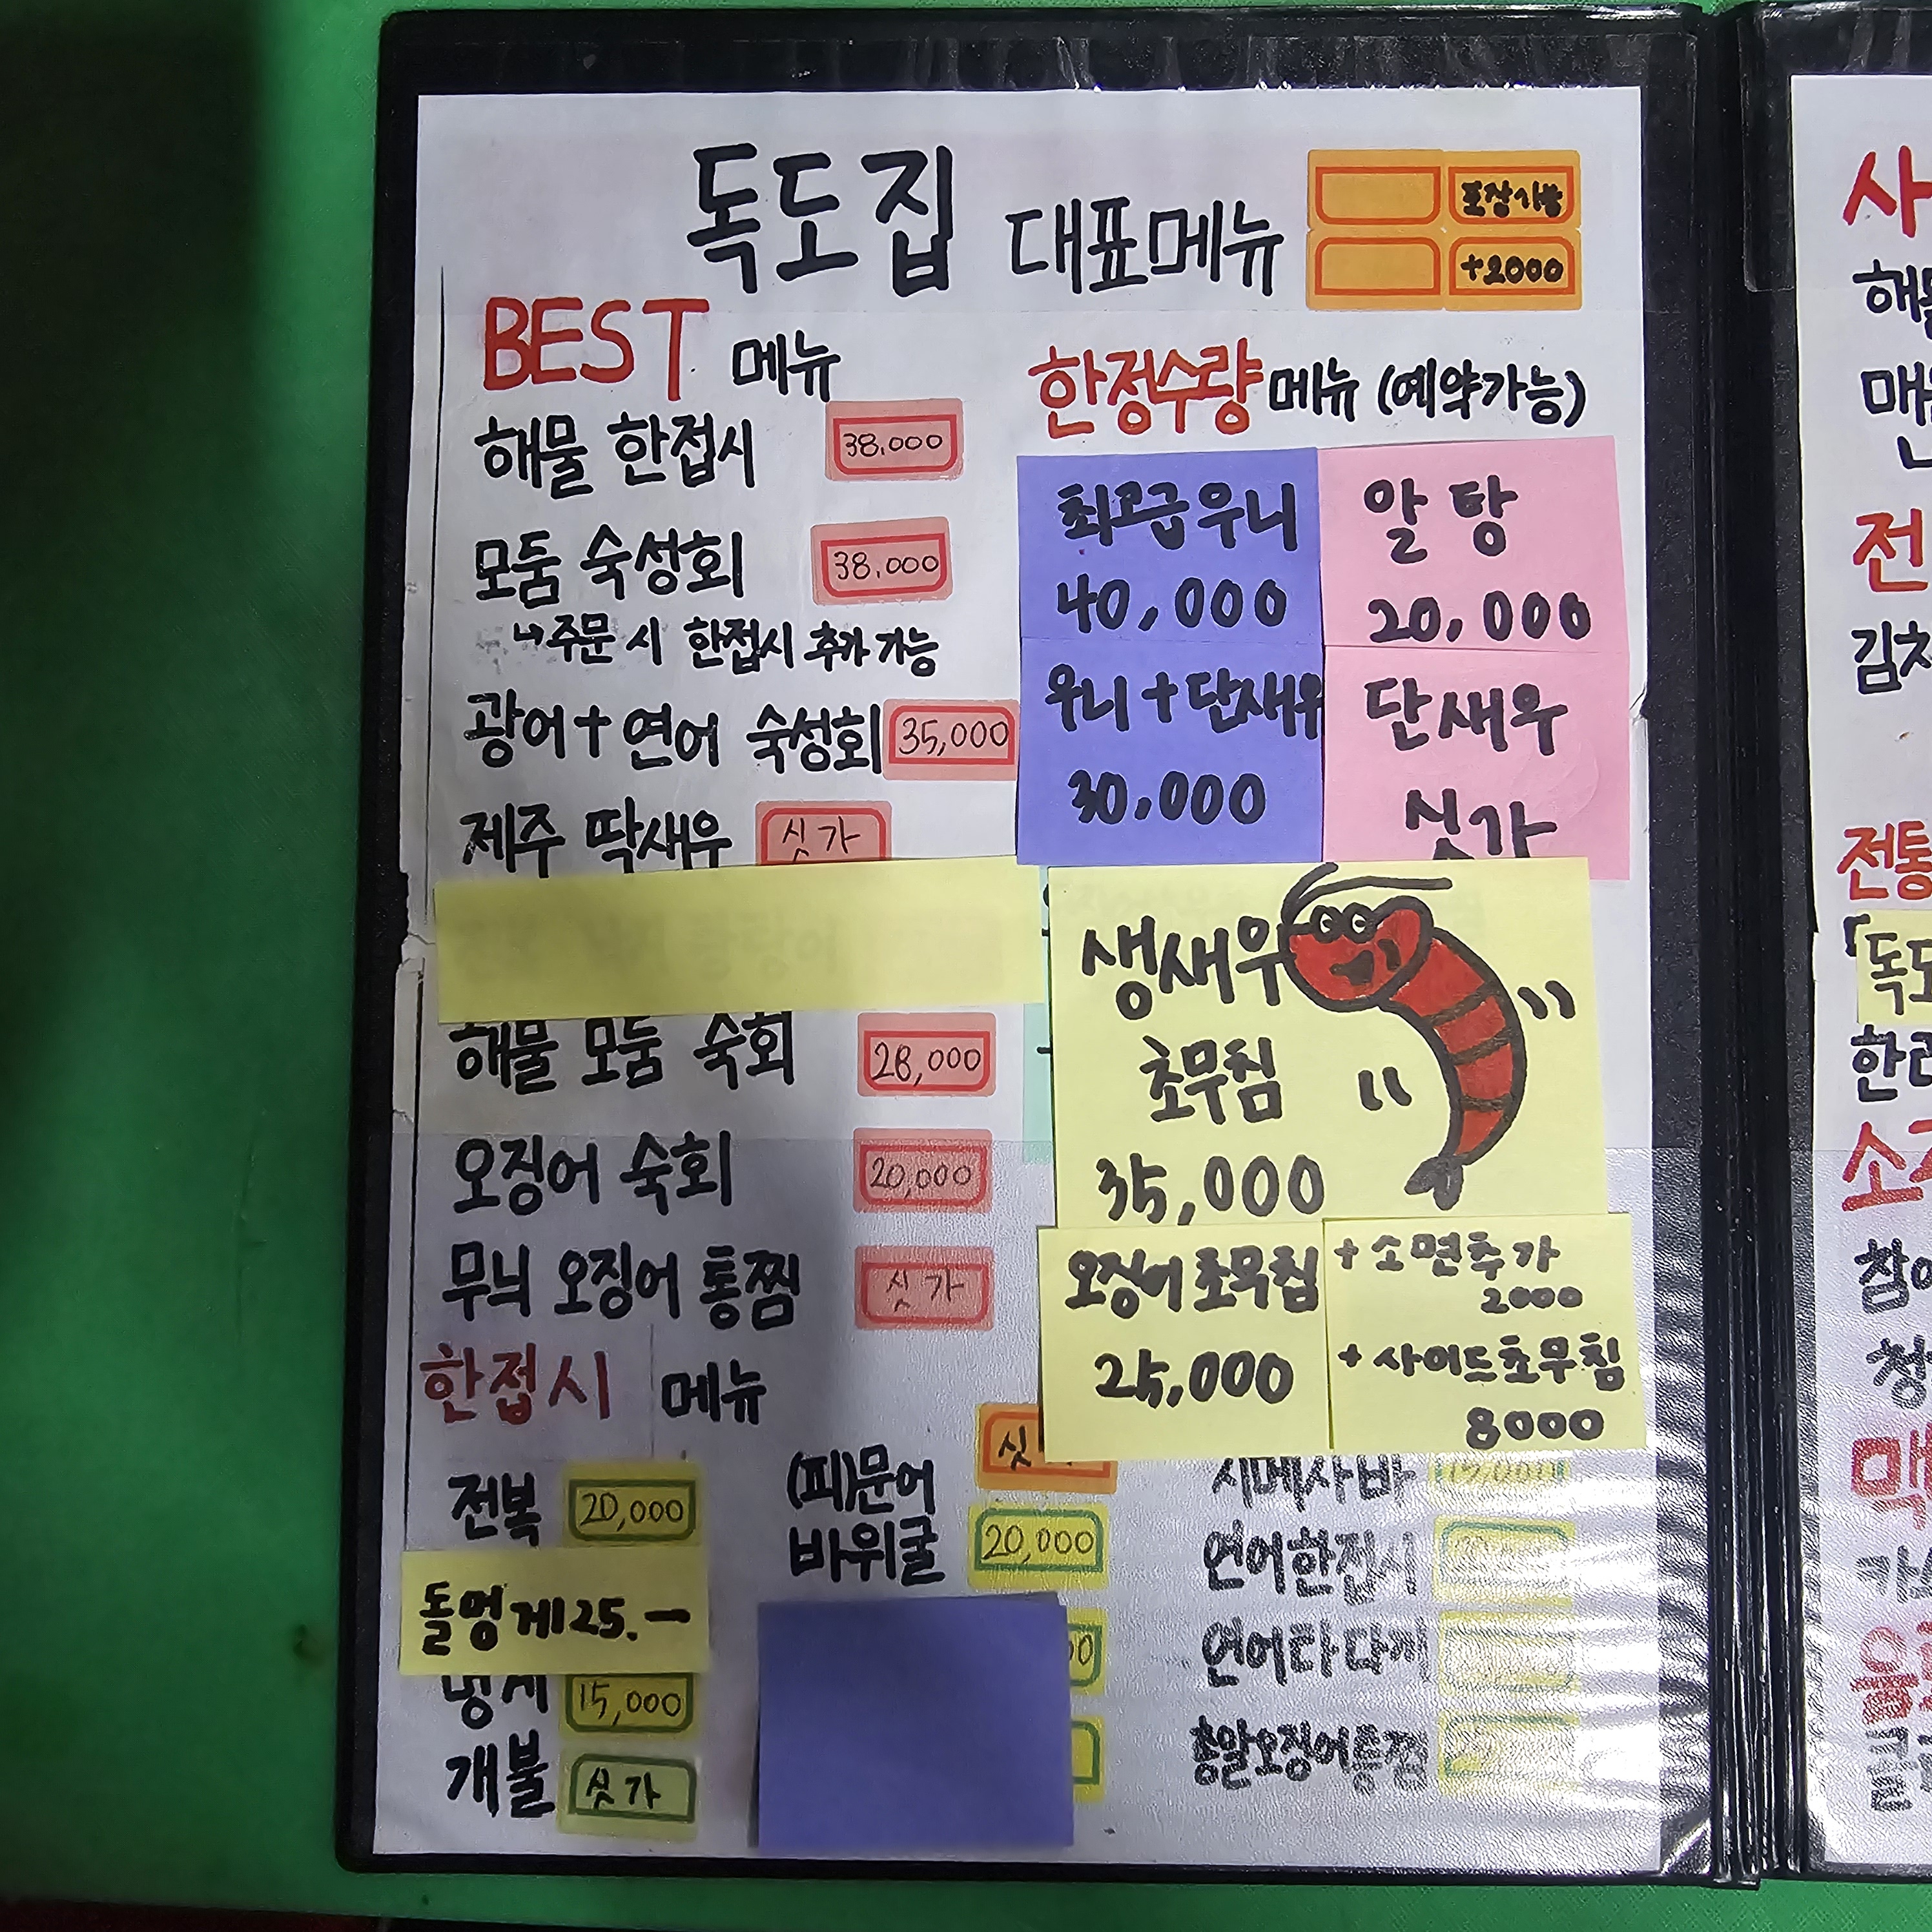 독도집 대표메뉴
포장가능
+2000
BEST 메뉴
해물 한접시 38,000
모둠 숙성회 38,000
↳주문 시 한접시 추가 가능
광어+연어 숙성회 35,000
제주 딱새우 싯가
해물 모둠 숙회 28,000
오징어 숙회 20,000
무늬 오징어 통찜 싯가
한정수량 메뉴 (예약가능)
최고급우니
40,000
알탕
20,000
우니+단새우
30,000
단새우
싯가
생새우
초무침
35,000
오징어 초무침
25,000
+소면추가
2000
+사이드초무침
8000
한접시 메뉴
전복 20,000
돌멍게 25.-
멍게 15,000
개불 싯가
(피)문어
바위굴 20,000
시메사바
연어한접시
연어타다끼
총알오징어통찜
전
김치
전통